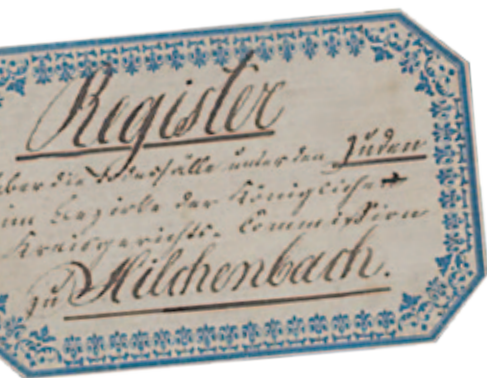 Register
über die Todesfälle unter den Juden
im Bezirke der Königlichen
Kreisgerichts-Commission
zu Hilchenbach.